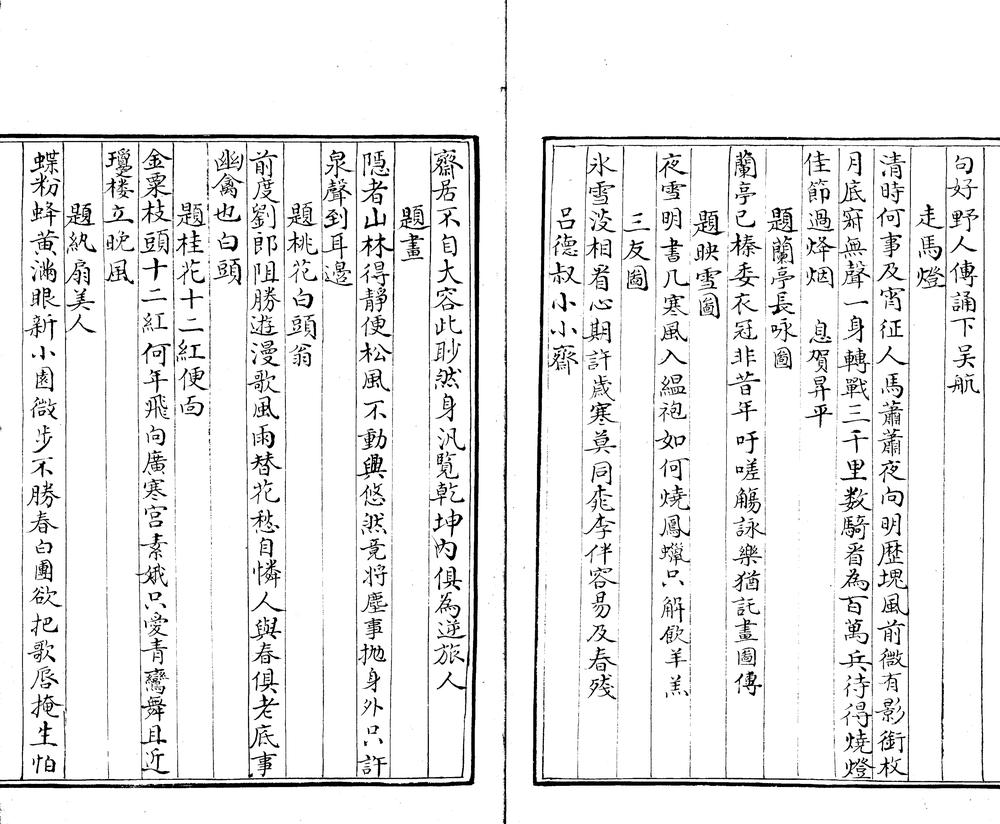 句好野人傳誦下吴航
走馬燈
清時何事及宵征人馬蕭蕭夜向明歷塊風前微有影銜枚
月底寂無聲一身轉戰三千里数騎看為百萬兵待得燒燈
佳節過烽烟　息賀昇平
題蘭亭長咏圖
蘭亭已榛委衣冠非昔年吁嗟觴詠樂猶託畫圖傳
題映雪圖
夜雪明書几寒風入縕袍如何燒鳳蠟只解飲羊羔
三友圖
氷雪没相看心期許歲寒莫同桃李伴容易及春殘
吕德叔小小齋
齋居不自大容此眇然身汎覽乾坤内俱為逆旅人
題畫
隱者山林得靜便松風不動興悠然竟將塵事抛身外只許
泉聲到耳邊
題桃花白頭翁
前度劉郎阻勝遊漫歌風雨替花愁自憐人與春俱老底事
幽禽也白頭
題桂花十二紅便面
金粟枝頭十二紅何年飛向廣寒宮素娥只愛青鸞舞且近
瓊樓立晚風
題紈扇美人
蝶粉蜂黄滿眼新小園微步不勝春白團欲把歌唇掩生怕